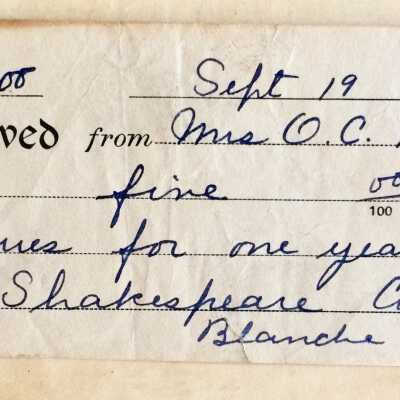 00 Sept 19
ved from Mrs O.C.
five 00
100
ues for one yea
Shakespeare C
Blanche